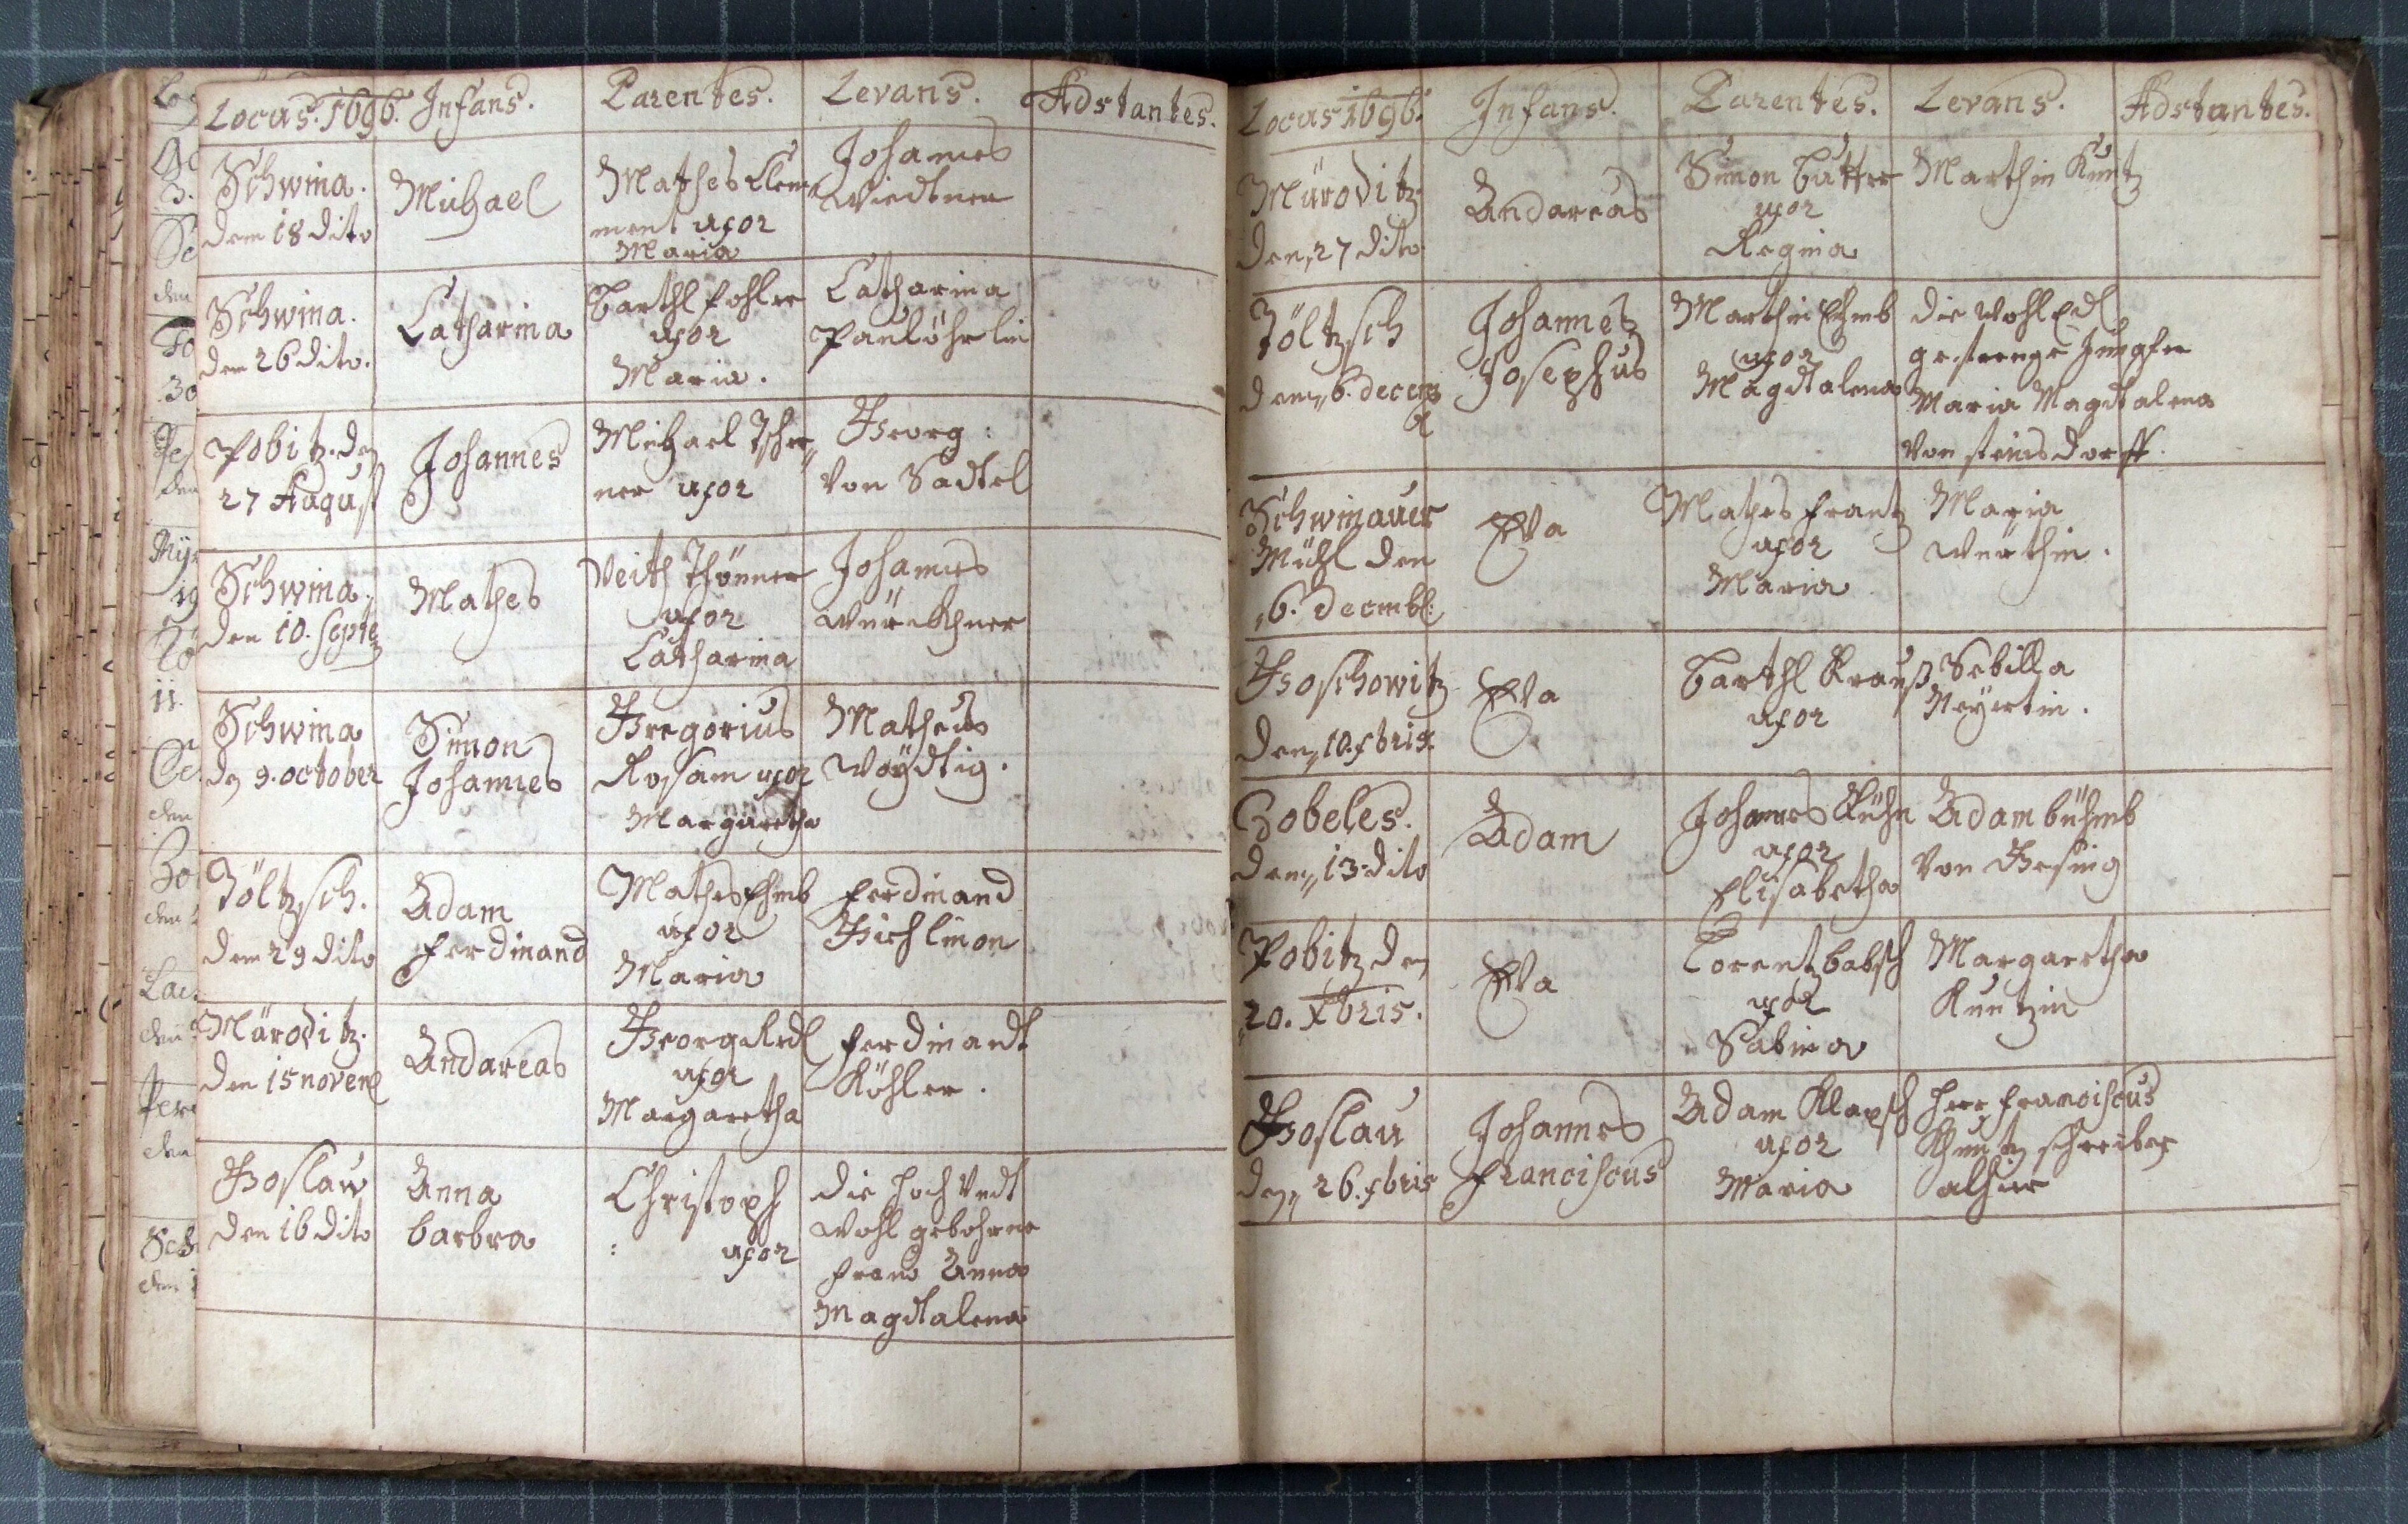 Locus. 1696. Infans. Parentes. Levans. Adstantes.
Schwina.
den 18 dito
Michael
Mathes Clem
ment uxor
Maria
Johannes
Wiedtner
Schwina.
den 26 dito.
Catharina
Barthl Fohler
uxor
Maria.
Catharina
Paulöhrlin
Pobitz. den
27 August
Johannes
Michael Tsche,,
ner uxor
Georg:
von Sadtel
Schwina.
den 10. Septe
Mathes
Veith Thönner
uxor
Catharina
Johannes
Würckhner
Schwina
den 9. october
Simon
Johannes
Gregorius
Rosam uxor
Margaretha
Matheus
Woÿdtig.
Zöltzsch.
den 29 dito
Adam
Ferdinand
Mathes Ehmb
uxor
Maria
Ferdinand
Märoditz.
den 15 novem
Andareas
Georg
uxor
Margaretha
Ferdinandt
Köhler.
Goslaw
den 16 dito
Anna
barbra
Christoph
: uxor
die hoch Undt
wohl gebohrne
fraw Anna
Magdtalena
Locus 1696. Infans. Parentes. Levans. Adstantes.
Märoditz
den,, 27 dito
Andareas
Simon Butter
uxor
Regina
Marthin Kuntz
Zöltzsch
den,, 6. decem
Johannes
Josephus
Marthin Ehmb
uxor
Magdtalena
die wohl Edl
gestrenge Jungfer
Maria Magdtalena
von steinsdorff.
Schwinauer
Mühl den
,,6. decmbl:
Eva
Mathes Frantz
uxor
Maria
Maria
Würthin.
Goschowitz
den,, 10. xbris
Eva
Barthl Krauß
uxor
Sebilla
Meyertin.
Zobeles.
den,, 13. dito
Adam
Johannes Kühn
uxor
Elisabetha
Adam bühmb
von Gesing
Pobitz den
20. Xbris.
Eva
Lorentz babsch
uxor
Sabina
Margaretha
Kuntzin
Goslau
den,, 26. xbris
Johannes
Franciscus
Adam Klapsch
uxor
Maria
Herr Franciscus
schreiber
alhier